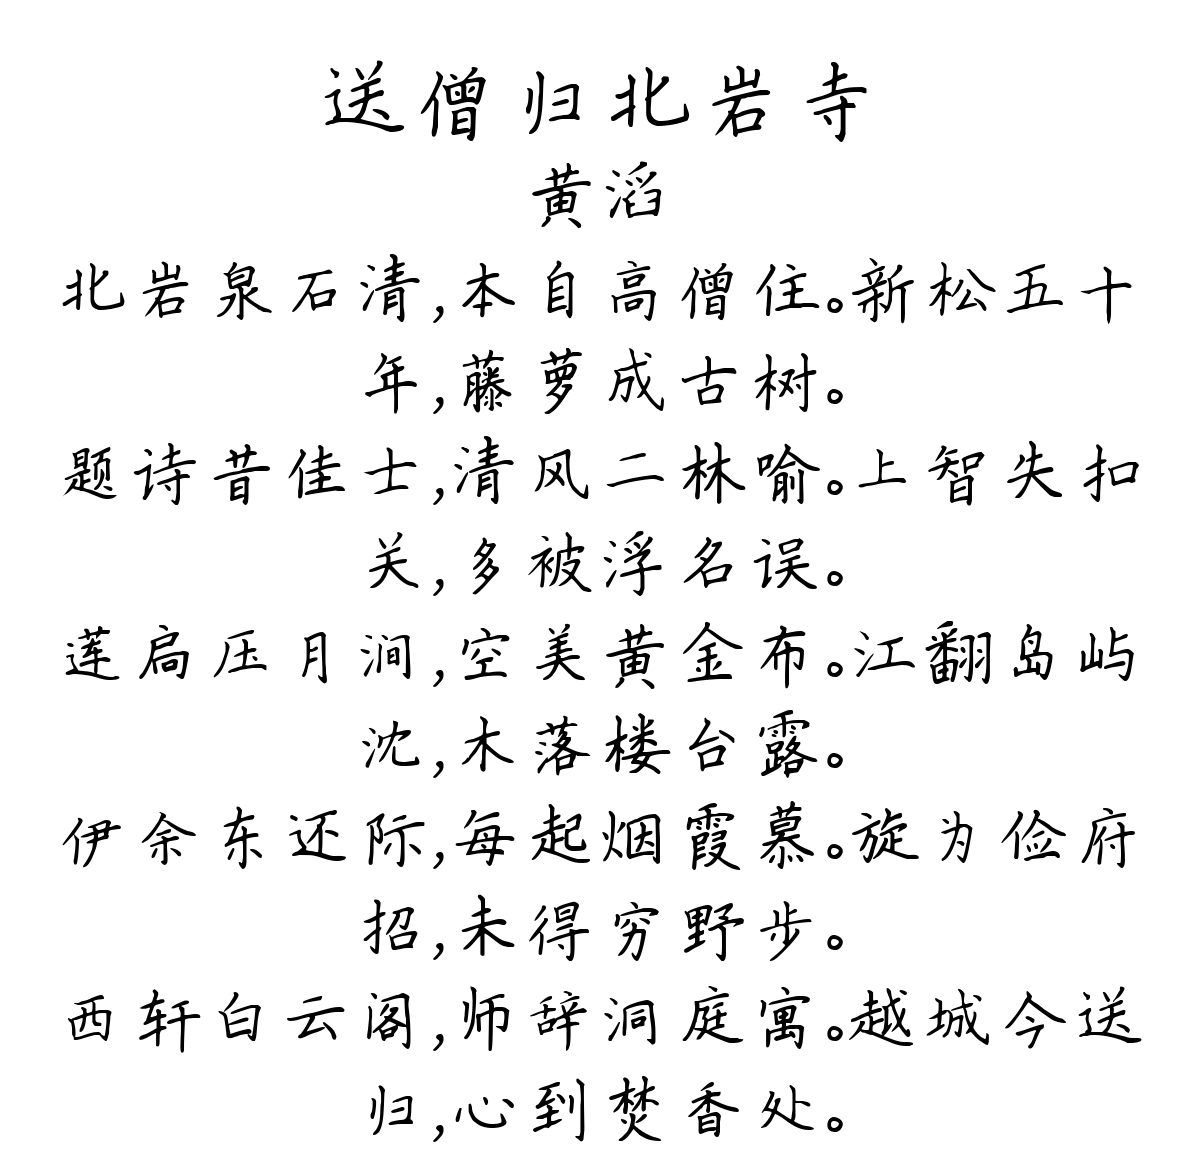 送僧归北岩寺
黄滔
北岩泉石清,本自高僧住。新松五十
年,藤萝成古树。
题诗昔佳士,清风二林喻。上智失扣
关,多被浮名误。
莲扃压月涧,空美黄金布。江翻岛屿
沈,木落楼台露。
伊余东还际,每起烟霞慕。旋为俭府
招,未得穷野步。
西轩白云阁,师辞洞庭寓。越城今送
归,心到焚香处。